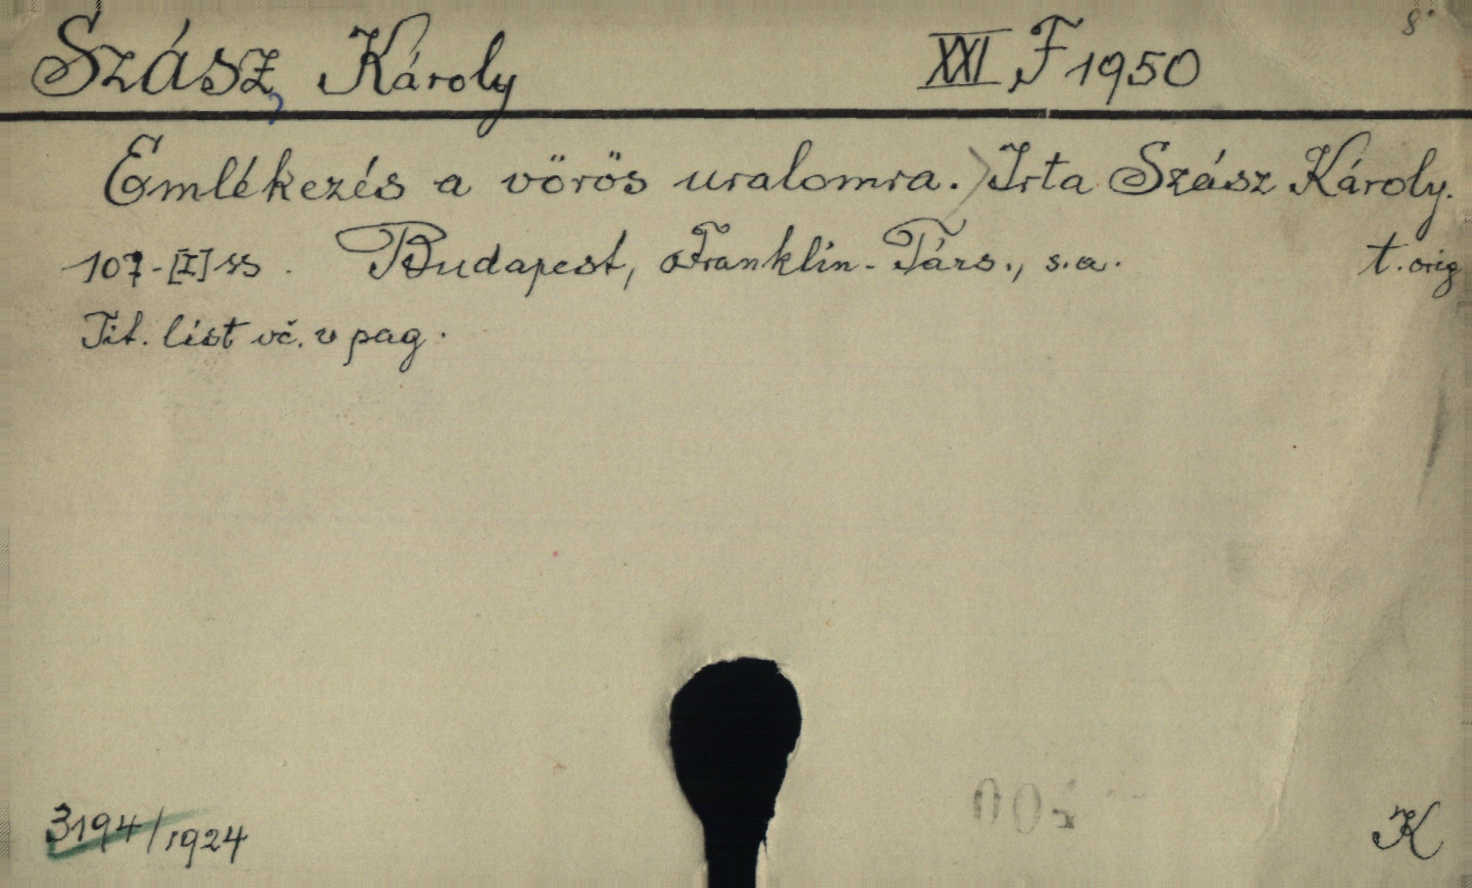 8°
Szász, Károly XXI F 1950
Emlékezés a vörös uralomra. Irta Szász Károly.
107-[I] ss. Budapest, Franklin-Társ., s.a. t. orig
Tit. list vč. v pag.
3194/1924
K